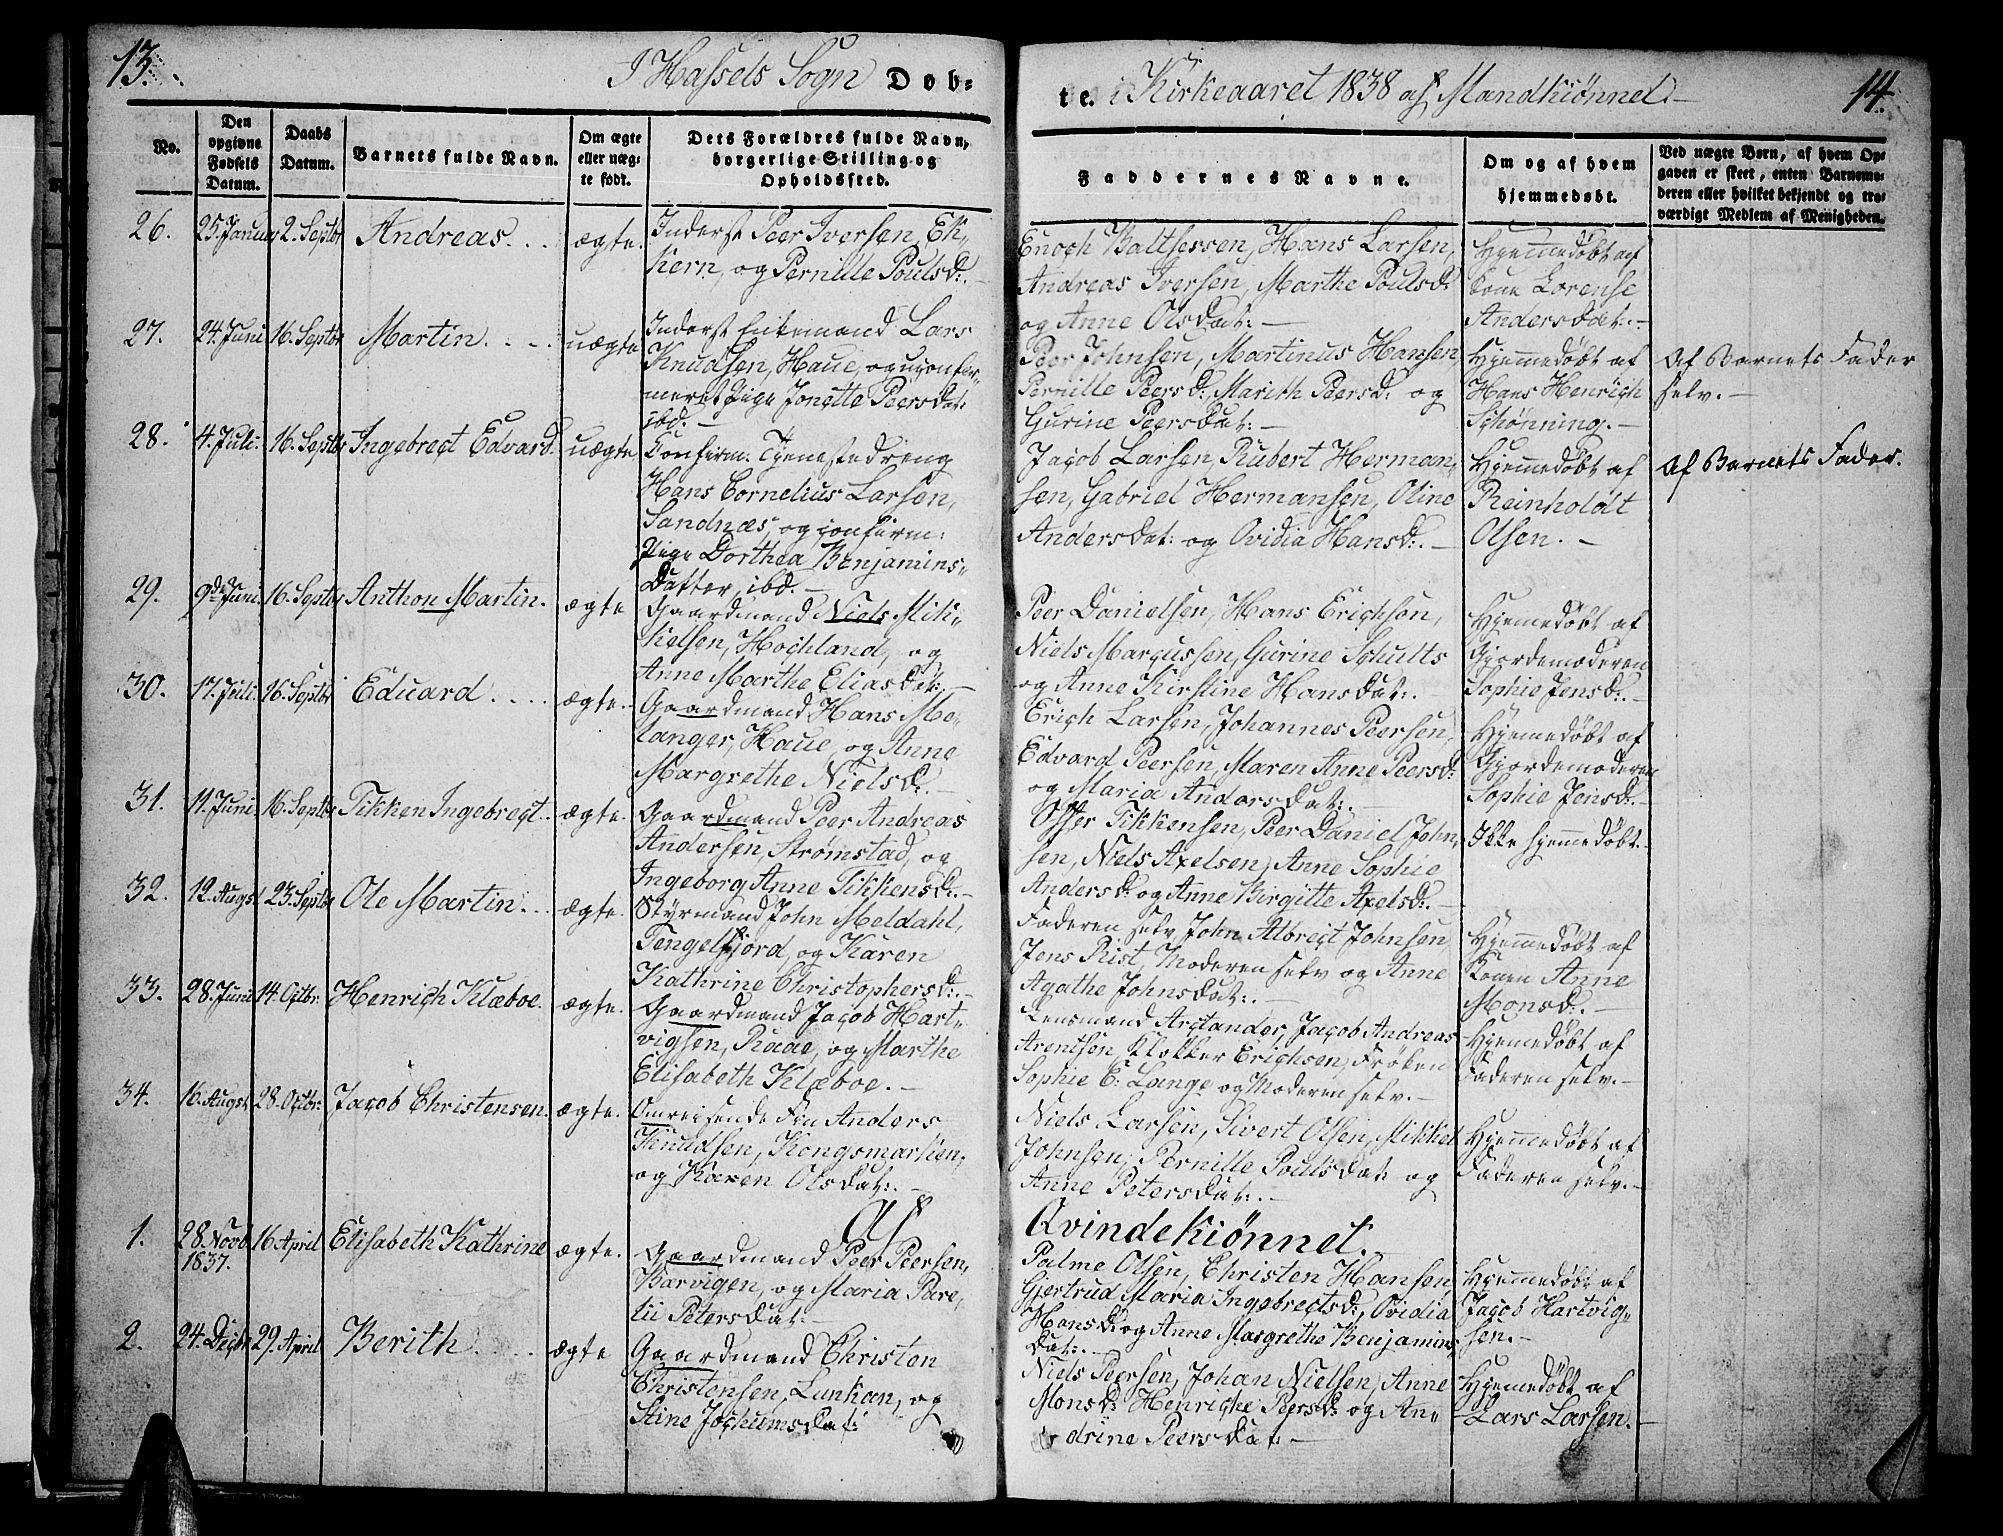 13.
I Hassels Sogn Døb-
te. i Kirkeaaret 1838 af Mandkiønnet.-
14.
No.
Den opgivne Fødsels Datum.
Daabs Datum.
Barnets fulde Navn.
Om ægte eller uæg- te født.
Dets Forældres fulde Navn, borgerlige Stilling og Opholdssted.
Faddernes Navne.
Om og af hvem hjemmedøbt.
Ved uægte Børn, af hvem Op- gaven er skeet, enten Barnemo- deren eller hvilket bekjendt og tro- værdigt Medlem af Menigheden.
26. 25. Januar 2. Septbr Andreas. ægte.
Inderst Peer Iversen, Ek-
kern, og Pernille Poulsd:.-
Enoch Baltsersen, Hans Larsen,
Andreas Iversen, Marthe Poulsd:
og Anne Olsdat:-
Hjemmedøbt af
Kone Lorense
Andersdat:.-
27. 24. Juni 16. Septbr Martin. uægte
Inderst Enkemand Lars
Knudsen, Haue, og uconfir-
meret Pige Jonette Peersdat:
ibd.-
Peer Johnsen, Martinus Hansen,
Pernille Peersd:, Marith Peersd: og
Gurine Peersdat:-
Hjemmedøbt af
Hans Henrich
Schønning.-
Af Barnets Fader
selv.-
28. 4. Juli. 16. Septbr Ingebregt Edvard. uægte
Confirm. Tjenestedreng
Hans Cornelius Larsen,
Sandnæs, og confirm:
Pige Dorthea Benjamins-
datter, ibd.-
Jacob Larsen, Rubert Herman-
sen, Gabriel Hermansen, Oline
Andersdat: og Ovidia Hansd:.-
Hjemmedøbt af
Reinholdt
Olsen.-
Af Barnets Fader.
29. 9de Juni. 16. Septbr Anthon Martin. ægte
Gaardmand Niels Mik-
kelsen, Hochland, og
Anne Marthe Eliasdat:
Peer Danielsen, Hans Erichsen,
Niels Marcussen, Gurine Schults
og Anne Kirstine Hansdat:.-
Hjemedøbt af
Gjordemoderen
Sophie Jensd:.-
30. 17. Juli. 16. Septbr Eduard. ægte.
Gaardmand Hans Me-
langer, Haue, og Anne
Margrethe Nielsd:.-
Erich Larsen, Johannes Peersen,
Edvard Peersen, Maren Anne Peersd:
og Maria Andersdat:.-
Hjemedøbt af
Gjordemoderen
Sophie Jensd:.-
31. 11. Juni. 16. Septbr Tikken Ingebregt. ægte.
Gaardmand Peer Andreas
Andersen, Strømstad, og
Ingeborg Anne Tikkensd:.-
Offer Tikkensen, Peer Daniel John-
sen, Niels Axelsen, Anne Sophie
Andersd: og Anne Birgitte Axelsd:.-
Ikke hjemmedøbt.-
32. 12. Augst 23. Septbr Ole Martin. ægte.
Styrmand John Meldahl,
Tengelfjord, og Karen
Kathrine Christophersd:.-
Faderen selv, John Albregt Johnsen,
Jens Rist, Moderen selv og Anne
Agathe Johnsdat:.-
Hjemmedøbt af
Konen Anne
Monsd:.-
33. 28. Juni 14. Octbr. Henrich Klæboe. ægte.
Gaardmand Jacob Hart-
vigsen, Raae, og Marthe
Elisabeth Klæboe.-
Lensmand Arctander, Jacob Andreas
Arentsen, Klokker Erichsen, Frøken
Sophie E. Lange og Moderen selv.-
Hjemmedøbt af
Faderen selv.-
34. 16. Augst 28. Octbr. Jacob Christensen. ægte.
Omreisende Fin Anders
Knudsen, Kongsmarken,
og Karen Olsdat:.-
Niels Larsen, Sivert Olsen, Mikkel
Johnsen, Pernille Poulsdat: og
Anne Petersdat:.-
Hjemmedøbt af
Faderen selv.-
Af Qvindekiønnet.
1. 28. Novb. 1837. 16 April Elisabeth Kathrine ægte.
Gaardmand Peer Peersen,
Korvigen, og Maria Pare-
lii Petersdat:
Palme Olsen, Christen Hansen,
Gjertrud Maria Ingebregtsd:, Ovidia
Hansd: og Anne Margrethe Benjamins-
dat:.-
Hjemmedøbt af
Jacob Hartvig-
sen.-
2. 24. Decbr 29. April Berith. ægte
Gaardmand Christen
Christensen, Lunkan, og
Stine Jochumsdat:
Niels Peersen, Johan Nielsen, Anne
Monsd: Henriche Peersd: og An-
drine Peersdat:-
Hjemedøbt af
Lars Larsen.-